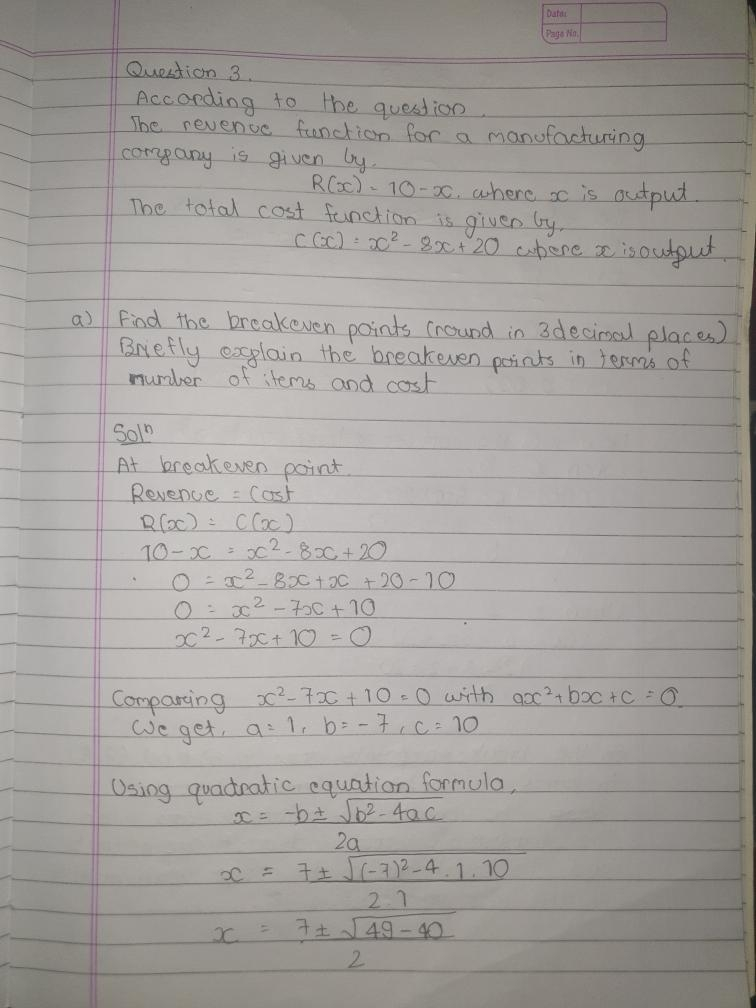 Date:
Page No.
Question 3.
According to the question.
The revenue function for a manufacturing
company is given by.
R(x) = 10-x. where x is output.
The total cost function is given by,
C(x) = x² - 8x + 20 where x is output.
a) Find the breakeven points (round in 3 decimal places)
Briefly explain the breakeven points in terms of
number of items and cost
Solⁿ
At breakeven point.
Revenue = Cost
R(x) = C(x)
10-x = x² - 8x + 20
0 = x² - 8x + x + 20 - 10
0 = x² - 7x + 10
x² - 7x + 10 = 0
Comparing x² - 7x + 10 = 0 with ax² + bx + c = 0.
We get, a = 1, b = -7, c = 10
Using quadratic equation formula,
x = -b ± √b² - 4ac
2a
x = 7 ± √(-7)² - 4 . 1 . 10
2 . 1
x = 7 ± √49 - 40
2